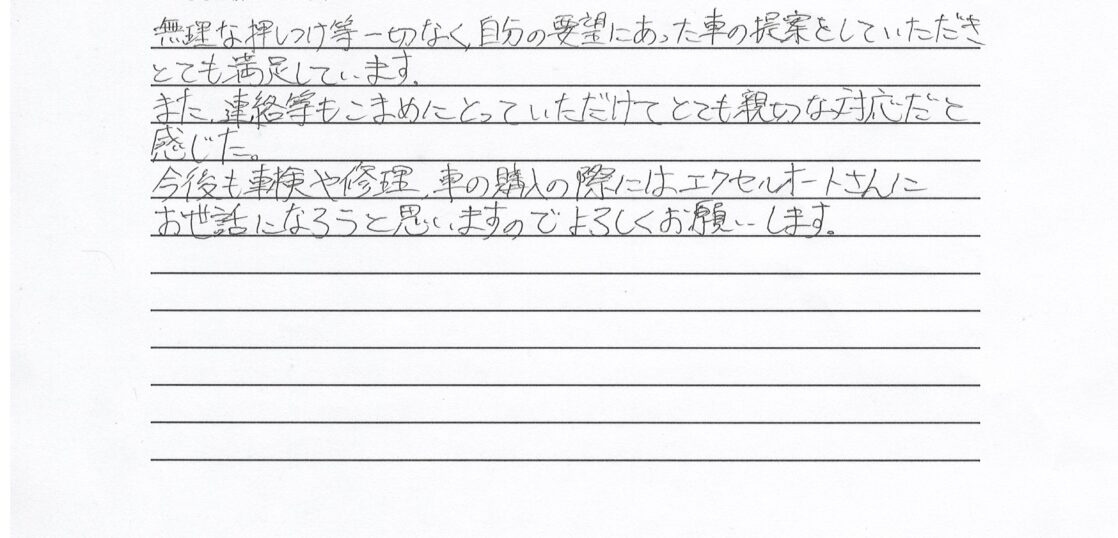 無理な押しつけ等一切なく、自分の要望にあった車の提案をしていただき
とても満足しています。
また、連絡等もこまめにとっていただけてとても親切な対応だと
感じた。
今後も車検や修理、車の購入の際にはエクセルオートさんに
お世話になろうと思いますのでよろしくお願いします。